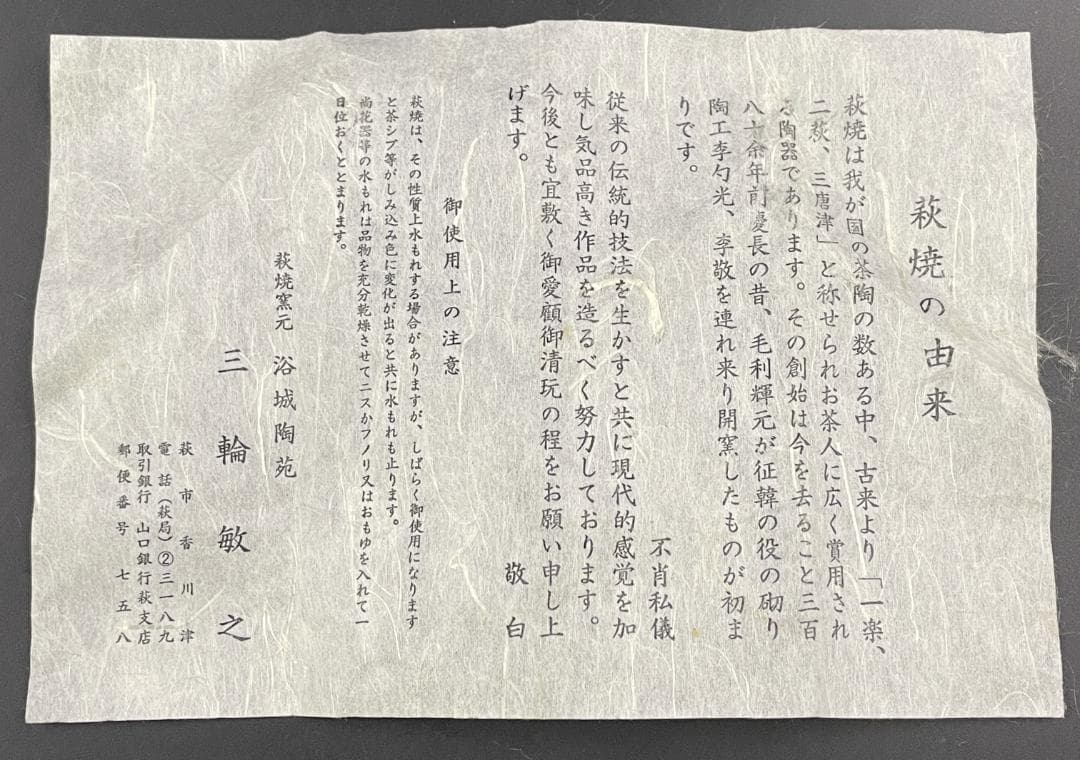 萩焼の由来
萩焼は我が国の茶陶の数ある中、古来より「一楽、
二萩、三唐津」と称せられお茶人に広く賞用され
る陶器であります。その創始は今を去ること三百
八十余年前慶長の昔、毛利輝元が征韓の役の砌り
陶工李勺光、李敬を連れ来り開窯したものが初ま
りです。
不肖私儀
従来の伝統的技法を生かすと共に現代的感覚を加
味し気品高き作品を造るべく努力しております。
今後とも宜敷く御愛顧御清玩の程をお願い申し上
げます。
敬白
御使用上の注意
萩焼は、その性質上水もれする場合がありますが、しばらく御使用になります
と茶シブ等がしみ込み色に変化が出ると共に水もれも止ります。
尚花器等の水もれは品物を充分乾燥させてニスかフノリ又はおもゆを入れて一
日位おくととまります。
萩焼窯元 浴城陶苑
三輪敏之
萩市香川津
電話(萩局)②三一八九
取引銀行 山口銀行萩支店
郵便番号 七五八